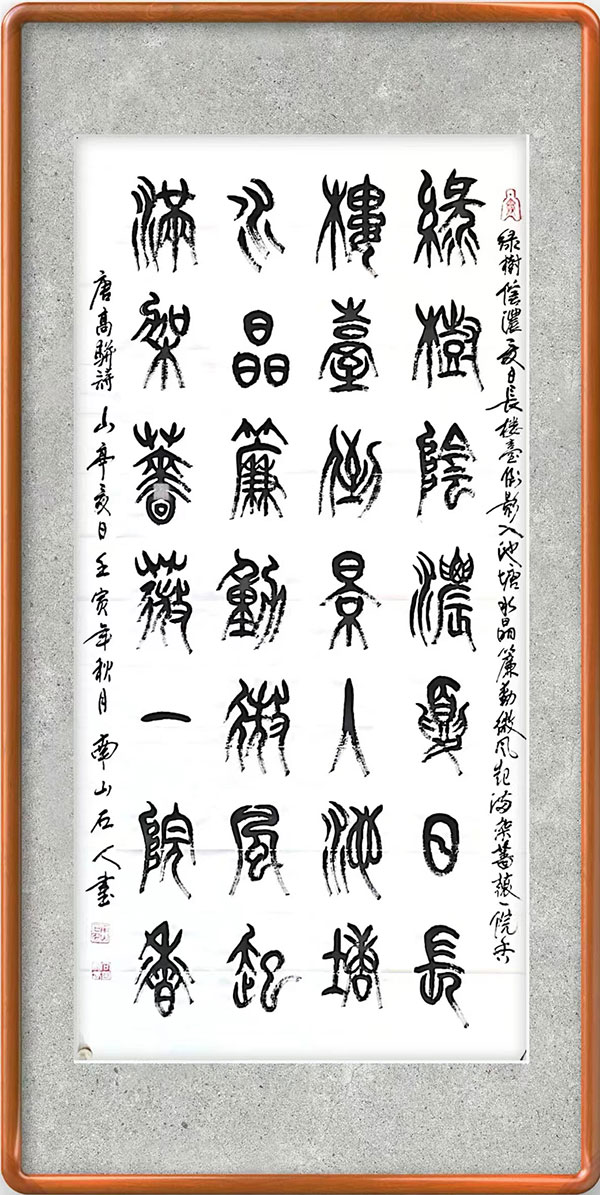 绿樹陰濃夏日長楼臺倒影入池塘水晶簾動微风起满架蔷薇一院香
綠樹陰濃夏日長
樓臺倒景入池塘
水晶簾動微風起
滿架薔薇一院香
唐高駢詩山亭夏日壬寅年秋月南山石人書